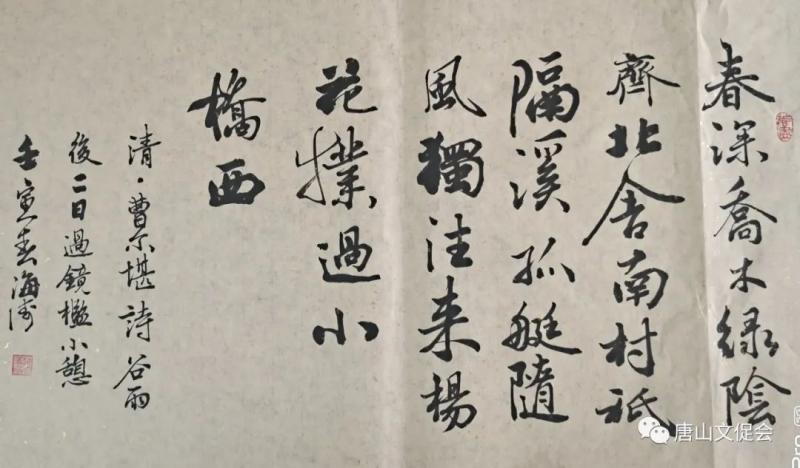 春深喬木綠陰
齊北舍南村祇
隔溪孤艇隨
風獨往来楊
花撲過小
橋西
清·曹尔堪詩谷雨
後二日過鏡檻小憩
壬寅春海
唐山文促会